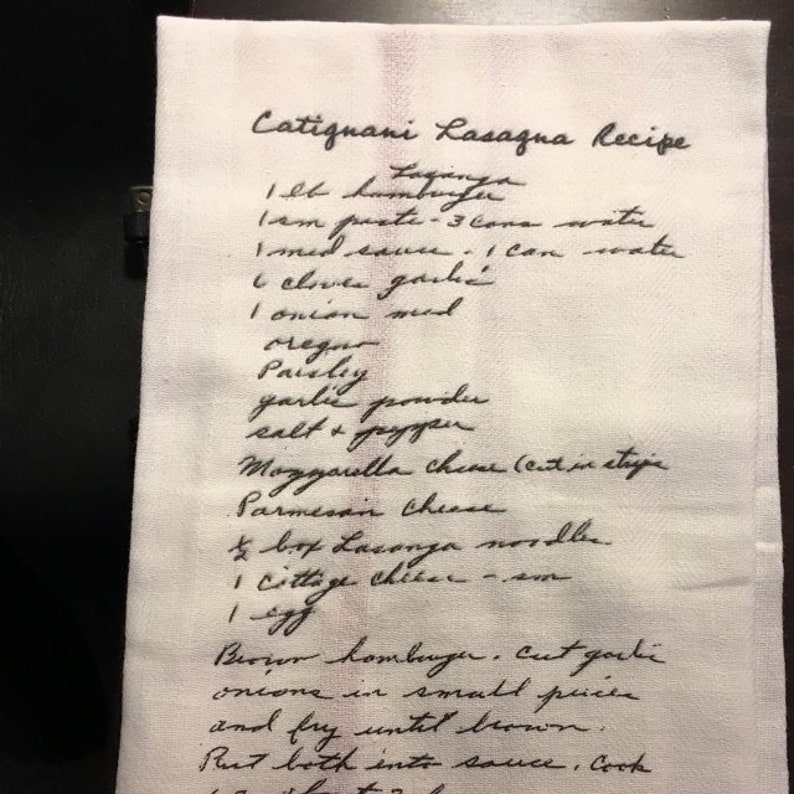 Catignani Lasagna Recipe
Lasanga
1 lb hamburger
1 sm paste - 3 cans water
1 med sauce - 1 can water
6 cloves garlic
1 onion med
oregno
Paisley
garlic powder
salt + pepper
Mozzarella cheese (cut in strips
Parmesain cheese
1/2 box Lasanga noodles
1 cottage cheese - sm
1 egg
Brown hamburger. Cut garlic
onions in small pieces
and fry until brown.
Put both into sauce. Cook